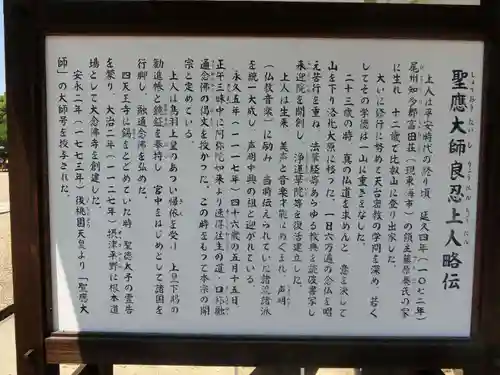 聖應大師良忍上人略伝
しょうおうだいしりょうにんしょうにん
上人は平安時代の終り頃 延久四年（一〇七二年）
尾州知多郡富田荘（現東海市）の領主藤原秦氏の家
に生れ 十二歳で比叡山に登り出家した
大いに修行に努めて天台密教の学問を深め 若く
してその学徳は一山に重きをなした。
二十三歳の時 真の仏道を求めんと 意を決して
山を下り洛北大原に移った。一日六万遍の念仏を唱
え苦行を重ね 法華経等あらゆる教典を読破書写し
来迎院を開創し 浄蓮華院等を復活建立した。
上人は生来 美声と音楽才能にめぐまれ 声明
（仏教音楽）に励み 当時伝えられていた諸流諸派
を統一大成し 声明中興の祖と迎がれている。
永久五年（一一一七年）四十六歳の五月十五日
正午三昧中に阿弥陀如来より速得往生の道・口称融
通念佛の偈文を授かった。この時をもって本宗の開
宗と定めている。
上人は鳥羽上皇のあつい帰依を受け 上皇下賜の
勧進帳と鏡鉦を奉持し 宮中をはじめとして諸国を
行脚し 融通念佛を弘めた。
四天王寺に錫をとどめていた時 聖徳太子の霊告
を蒙り 大治二年（一一二七年）摂津平野に根本道
場として大念佛寺を創建した。
安永二年（一七七三年）後桃園天皇より「聖應大
師」の大師号を授与された。